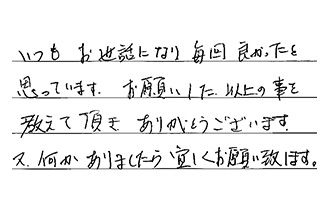 いつも お世話になり 毎回 良かったと
思っています。 お願いした 以上の事を
教えて頂き ありがとうございます
又、何か ありましたら 宜しくお願い致します。